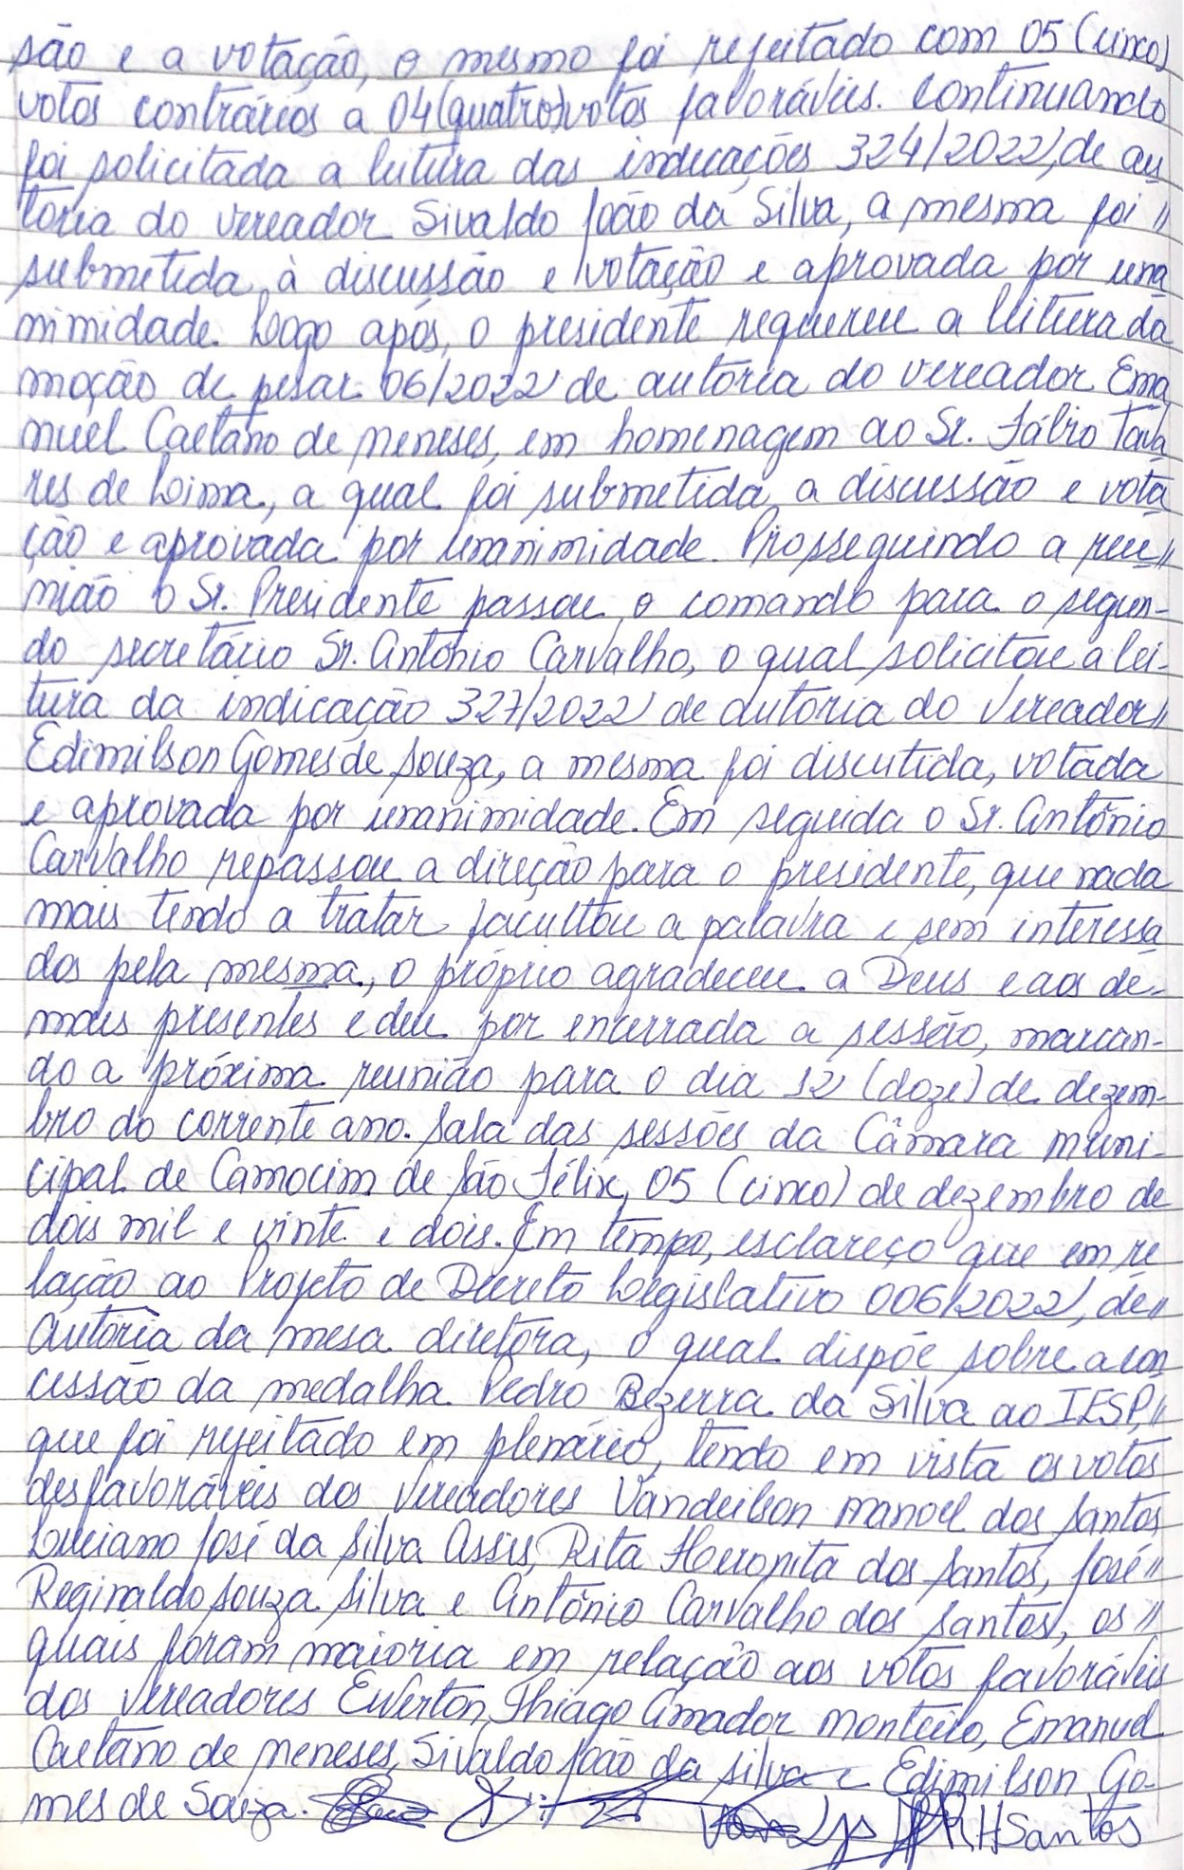 são e a votação, o mesmo foi rejeitado com 05 (cinco)
votos contrários a 04 (quatro) votos favoráveis. Continuando
foi solicitada a leitura das indicações 324/2022, de au
toria do vereador Sivaldo João da Silva, a mesma foi //
submetida à discussão e votação e aprovada por una
nimidade. Logo após, o presidente requereu a leitura da
moção de pesar 06/2022 de autoria do vereador Ema
nuel Caetano de meneses, em homenagem ao Sr. Fábio Tava
res de Lima, a qual foi submetida a discussão e vota
ção e aprovada por unanimidade. Prosseguindo a reu//
nião o Sr. Presidente passou o comando para o segun-
do secretário Sr. Antônio Carvalho, o qual solicitou a lei-
tura da indicação 327/2022 de autoria do Vereador//
Edimilson Gomes de Souza, a mesma foi discutida, votada
e aprovada por unanimidade. Em seguida o Sr. Antônio
Carvalho repassou a direção para o presidente, que nada
mais tendo a tratar facultou a palavra e sem interessa
dos pela mesma, o próprio agradeceu a Deus e aos de-
mais presentes e deu por encerrada a sessão, marcan-
do a próxima reunião para o dia 12 (doze) de dezem-
bro do corrente ano. Sala das sessões da Câmara muni-
cipal de Camocim de São Félix, 05 (cinco) de dezembro de
dois mil e vinte e dois. Em tempo, esclareço que em re
lação ao Projeto de Decreto Legislativo 006/2022, de//
autoria da mesa diretora, o qual dispõe sobre a con
cessão da medalha Pedro Bezerra da Silva ao IESP,//
que foi rejeitado em plenário, tendo em vista os votos
desfavoráveis dos Vereadores Vandeilson manoel dos Santos
Luciano José da Silva Assis, Rita dos Santos, José//
Reginaldo Souza Silva e Antônio Carvalho dos Santos, os//
quais foram maioria em relação aos votos favoráveis
dos Vereadores Ewerton Thiago Amador monteiro, Emanuel
Caetano de meneses, Sivaldo João da Silva e Edimilson Go-
mes de Souza. RHSantos